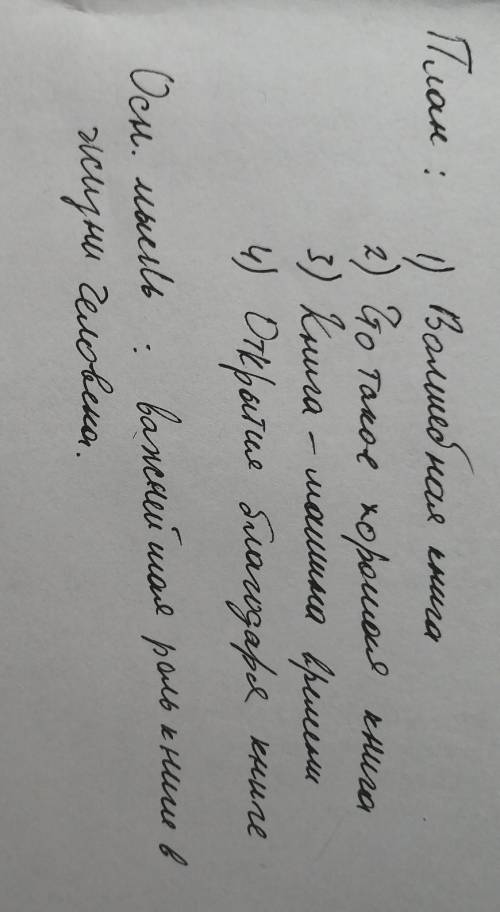 План: 1) Волшебная книга
2) Что такое хорошая книга
3) Книга – машина времени
4) Открытия благодаря книге
Осн. мысль: важнейшая роль книги в
жизни человека.